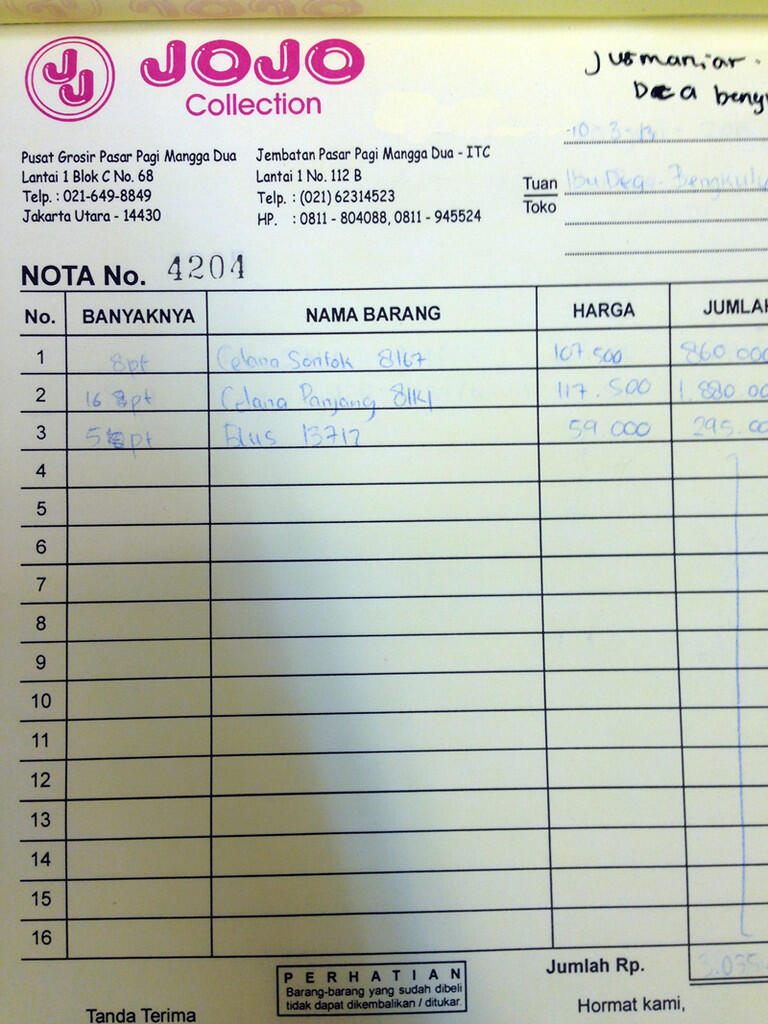 JJ JOJO
Collection
Jusmaniar.
Pusat Grosir Pasar Pagi Mangga Dua
Lantai 1 Blok C No. 68
Telp. : 021-649-8849
Jakarta Utara - 14430
Jembatan Pasar Pagi Mangga Dua - ITC
Lantai 1 No. 112 B
Telp. : (021) 62314523
HP. : 0811 - 804088, 0811 - 945524
10-3-13
Tuan Ibu Dega. Bengkulu
Toko
NOTA No. 4204
No. BANYAKNYA NAMA BARANG HARGA JUMLAH
1 8pt Celana 8167 107.500 860.000
2 16 pt Celana Panjang 8141 117.500 1.880.00
3 5 pt Blus 13712 59.000 295.00
4
5
6
7
8
9
10
11
12
13
14
15
16
Jumlah Rp. 3.035.
PERHATIAN
Barang-barang yang sudah dibeli
tidak dapat dikembalikan / ditukar.
Tanda Terima
Hormat kami,